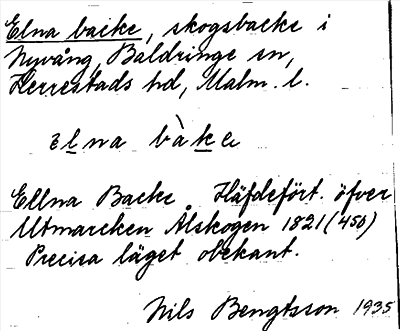 Elna backe, skogsbacke i
Nyvång, Baldringe sn,
Herrestads hd, Malm. l.
elna bàke
Ellna Backe Häfdefört. öfver
Utmarcken Ålskogen 1821 (458)
Precisa läget obekant.
Nils Bengtsson 1935